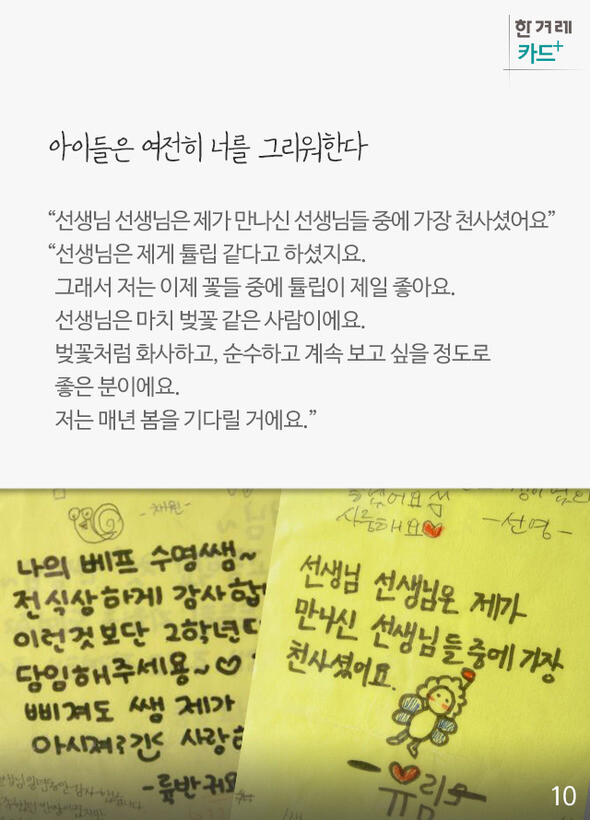 한겨레
카드+
아이들은 여전히 너를 그리워한다
“선생님 선생님은 제가 만나신 선생님들 중에 가장 천사셨어요”
“선생님은 제게 튤립 같다고 하셨지요.
그래서 저는 이제 꽃들 중에 튤립이 제일 좋아요.
선생님은 마치 벚꽃 같은 사람이에요.
벚꽃처럼 화사하고, 순수하고 계속 보고 싶을 정도로
좋은 분이에요.
저는 매년 봄을 기다릴 거에요.”
-채원-
나의 베프 수영쌤~
전 식상하게 감사합
이런것보단 2학년다
담임해주세용~♡
삐져도 쌤 제가
아시져?긴< 사랑하
사릉해요♥
-선명-
선생님 선생님은 제가
만나신 선생님들중에 가장
천사셨어요.
10